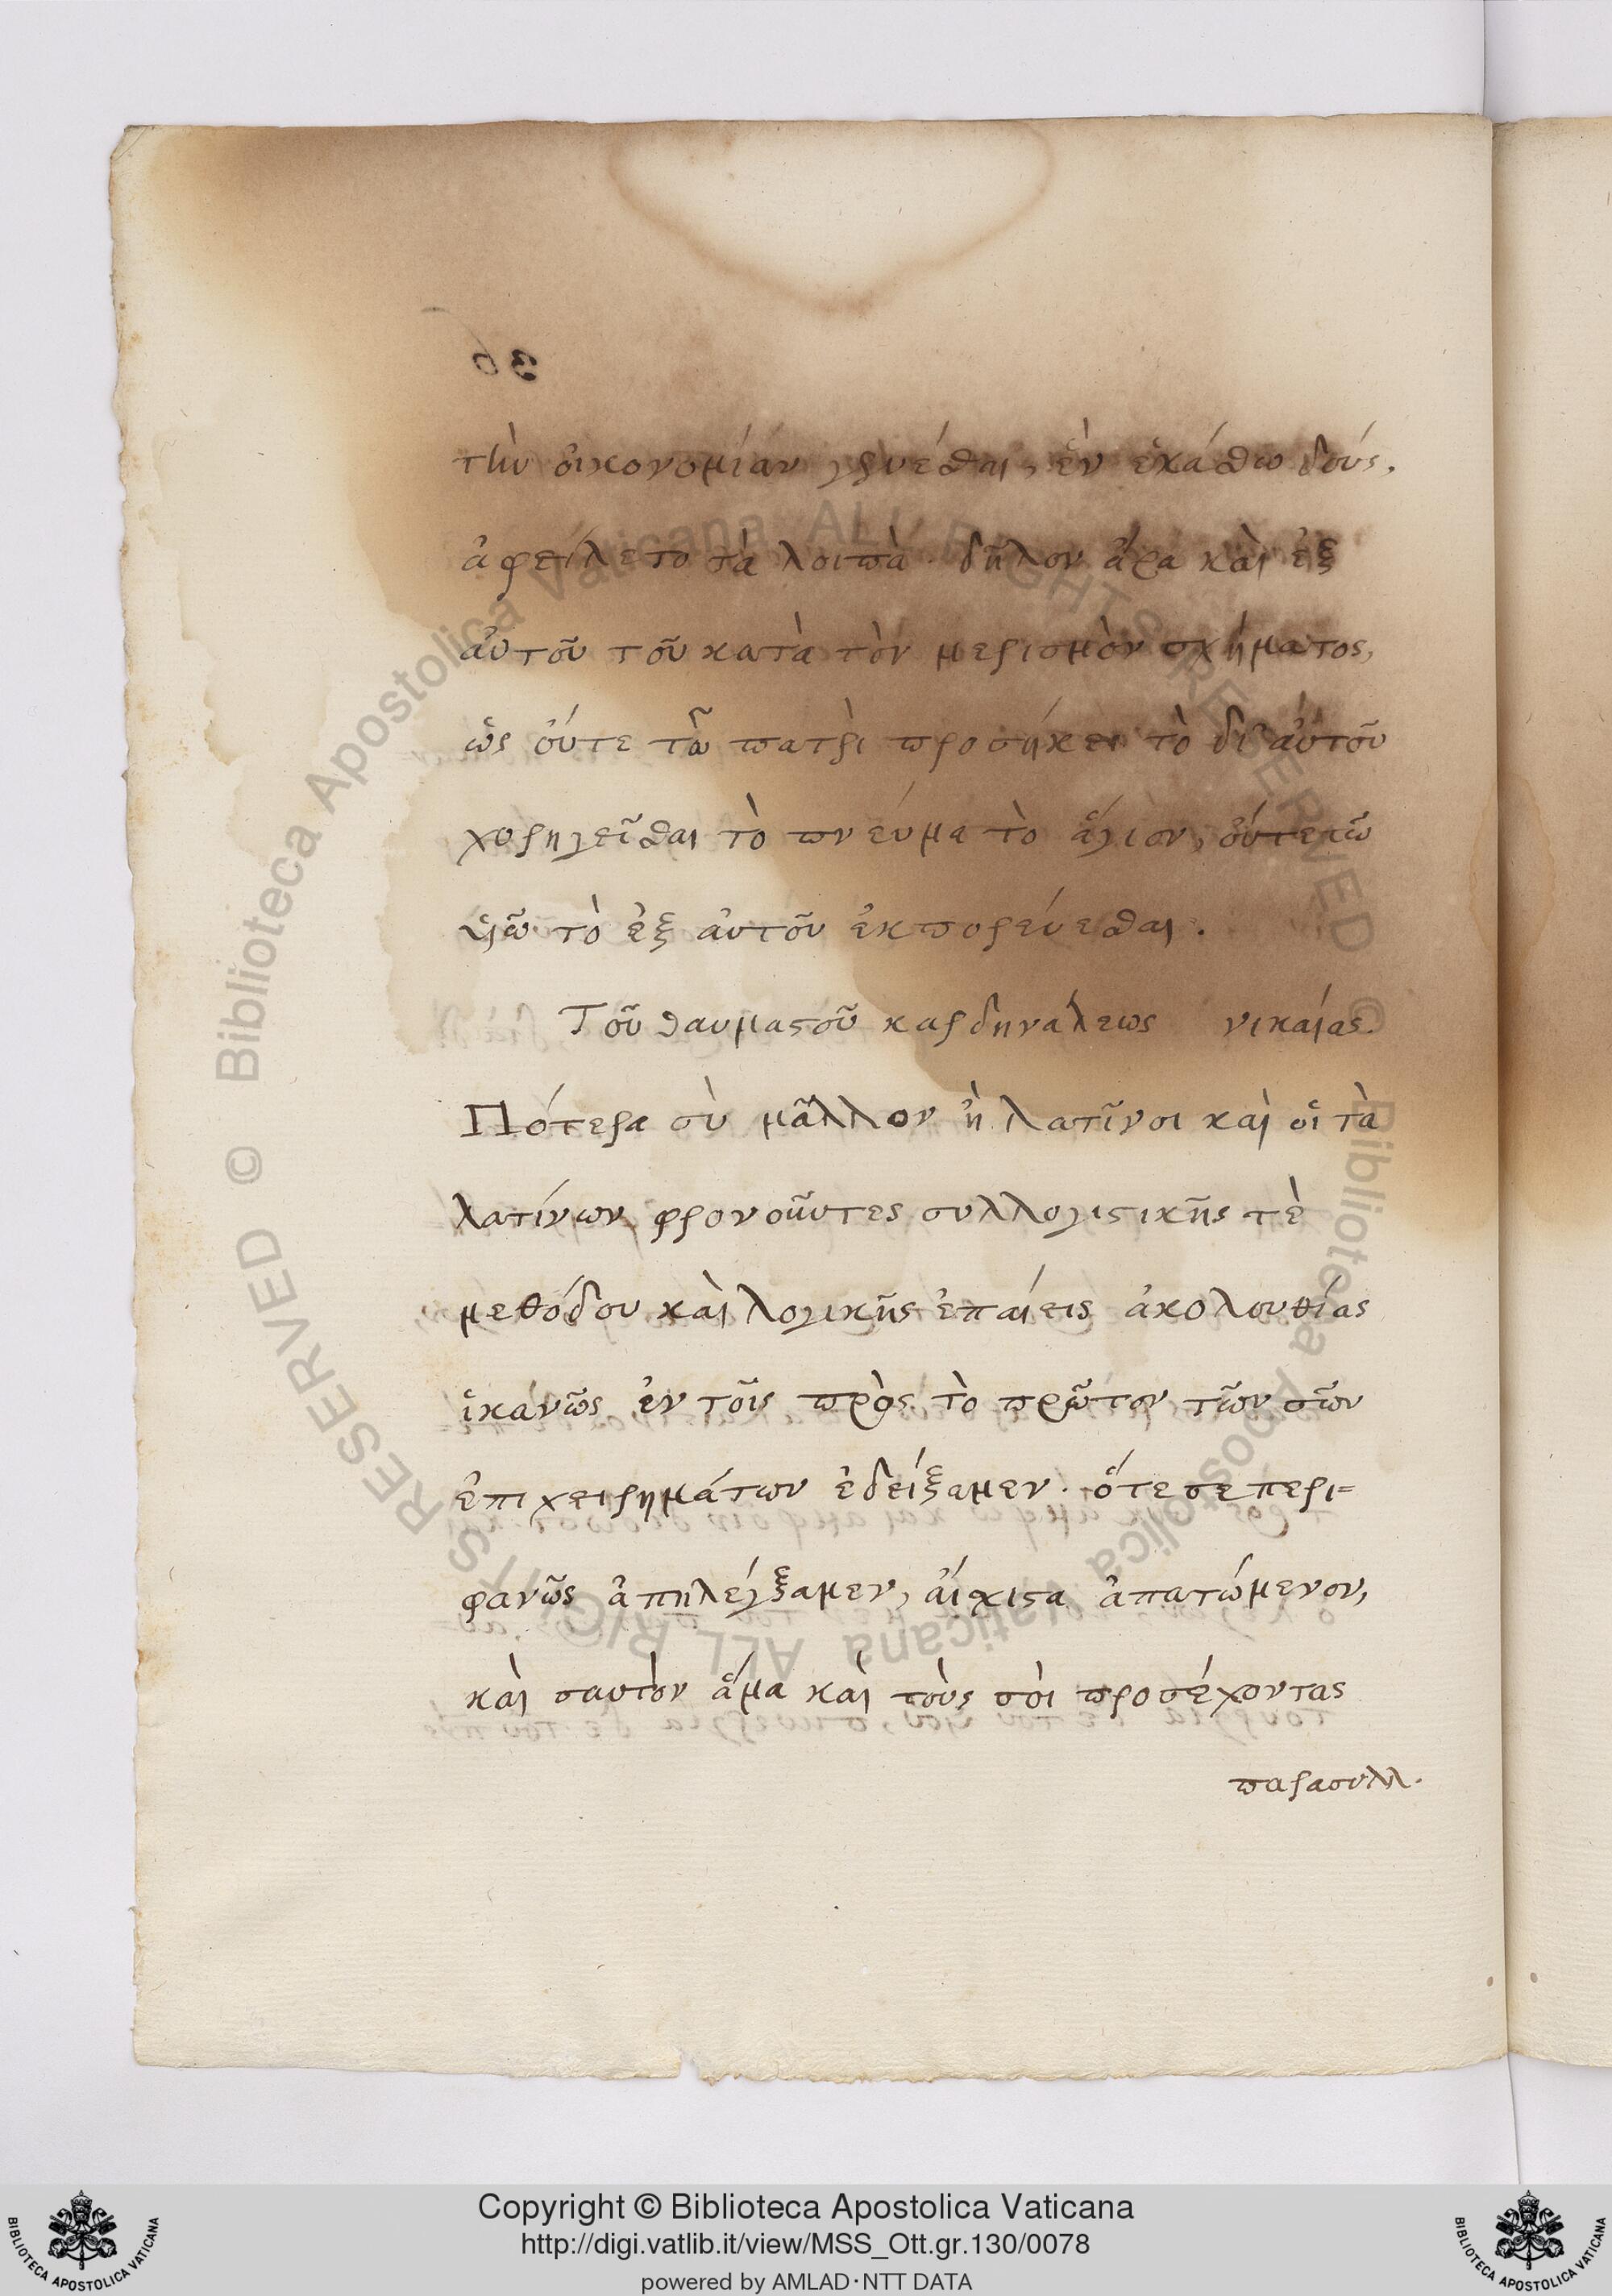 τὴν οἰκονομίαν γενέσθαι, ἓν ἑκάστῳ δούς,
ἀφείλετο τὰ λοιπὰ. δῆλον ἄρα καὶ ἐξ
αὐτοῦ τοῦ κατὰ τὸν μερισμὸν σχήματος,
ὡς οὔτε τῶ πατρὶ προσήκει τὸ δι αὐτοῦ
χορηγεῖσθαι τὸ πνεύμα τὸ ἅγιον, οὔτε τῶ
ὑιῶ τὸ ἐξ αὐτοῦ ἐκπορεύεσθαι.
Τοῦ θαυμαστοῦ καρδηνάλεως νικαίας.
Πότερα σὺ μᾶλλον ἢ λατῖνοι καὶ οἱ τὰ
λατίνων φρονοῦντες συλλογιστικῆς τὲ
μεθόδου καὶ λογικῆς ἐπαίεις ἀκολουθίας
ἱκανῶς ἐν τοῖς πρὸς τὸ πρῶτον τῶν σῶν
ἐπιχειρημάτων ἐδείξαμεν. ὅτε σε περι=
φανῶς ἀπηλέγξαμεν, αἴσχιστα ἀπατώμενον,
καὶ σαυτὸν ἅμα καὶ τοὺς σοὶ προσέχοντας
παρασυλλ.
36
Biblioteca Apostolica Vaticana ALL RIGHTS RESERVED ©
Biblioteca Apostolica Vaticana ALL RIGHTS RESERVED ©
Copyright © Biblioteca Apostolica Vaticana
http://digi.vatlib.it/view/MSS_Ott.gr.130/0078
powered by AMLAD·NTT DATA
BIBLIOTECA APOSTOLICA VATICANA
BIBLIOTECA APOSTOLICA VATICANA